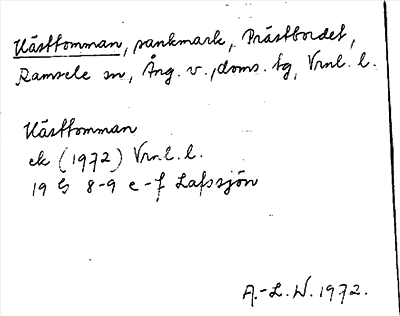 Kästtomman, sankmark, Prästbordet,
Ramsele sn, Ång. v., doms. tg, Vrnl. l.
Kästtomman
ek (1972) Vrnl. l.
19 G 8-9 e-f Lafssjön
A.-L. W. 1972.